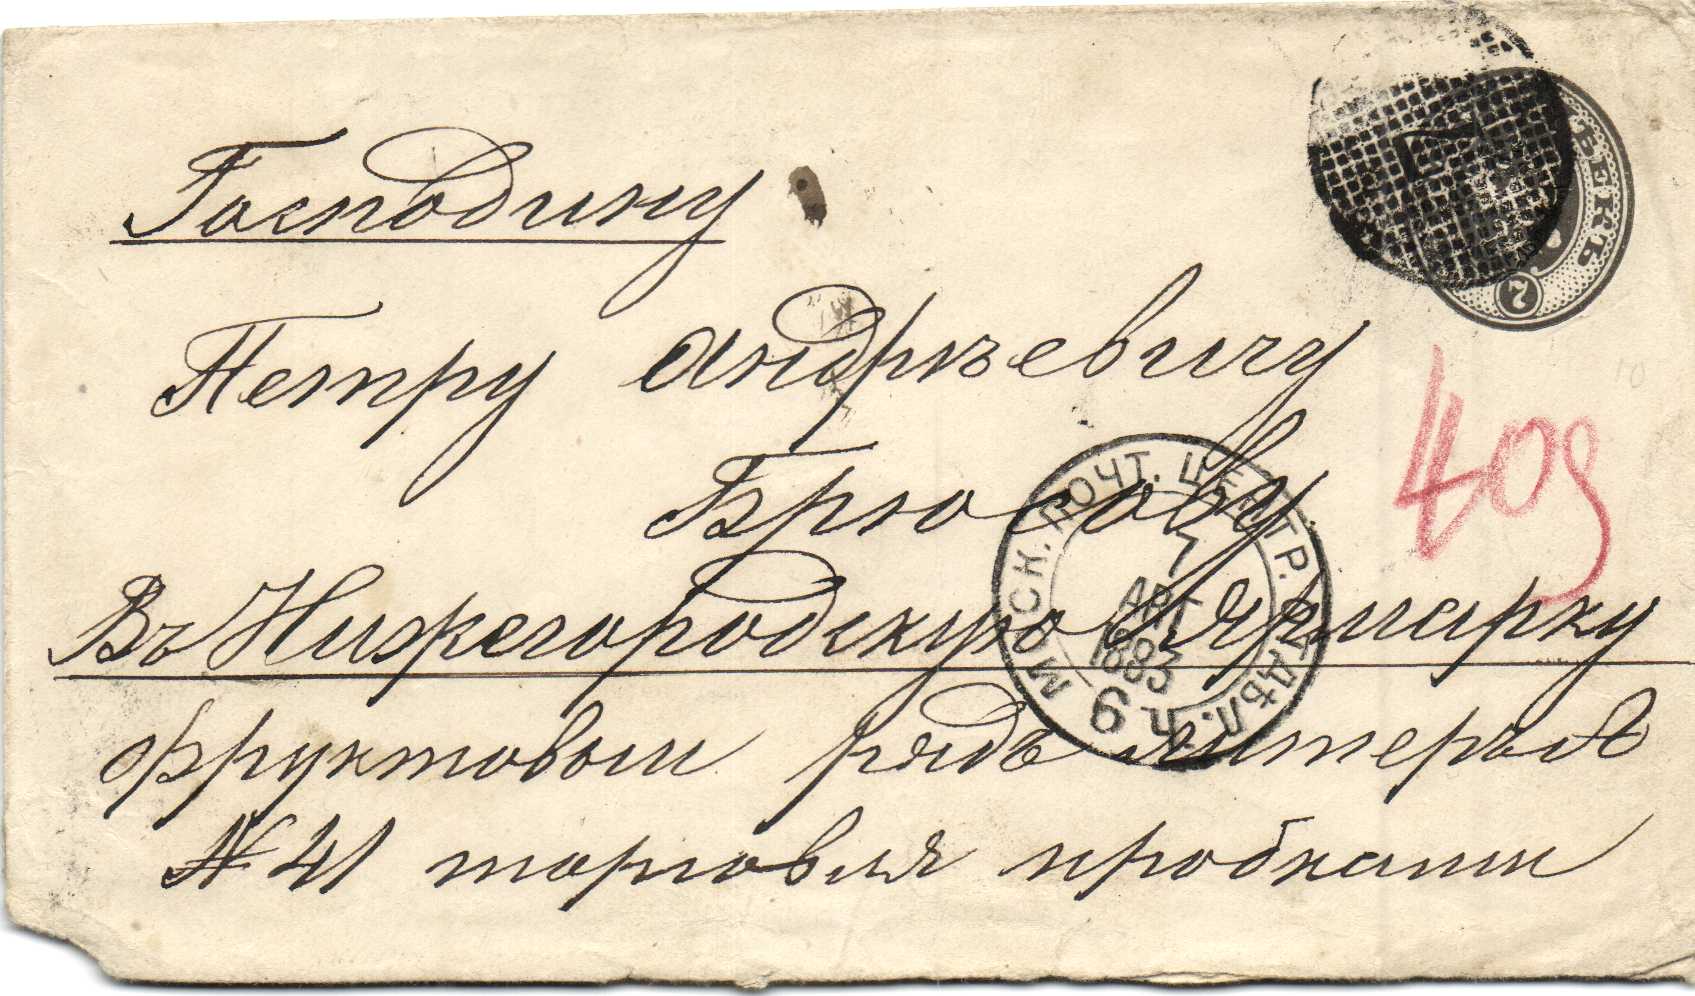 Господину
Петру Андрѣевичу
Брюсову
Въ Нижегородскую Ярмарку
Фруктовый рядъ литеръ А
№ 41 торговля пробками
МОСК. ПОЧТ. ЦЕНТР. ОТДѢЛ.
7
АВГ
1883
9 ч.
ВЕКЪ
7
409